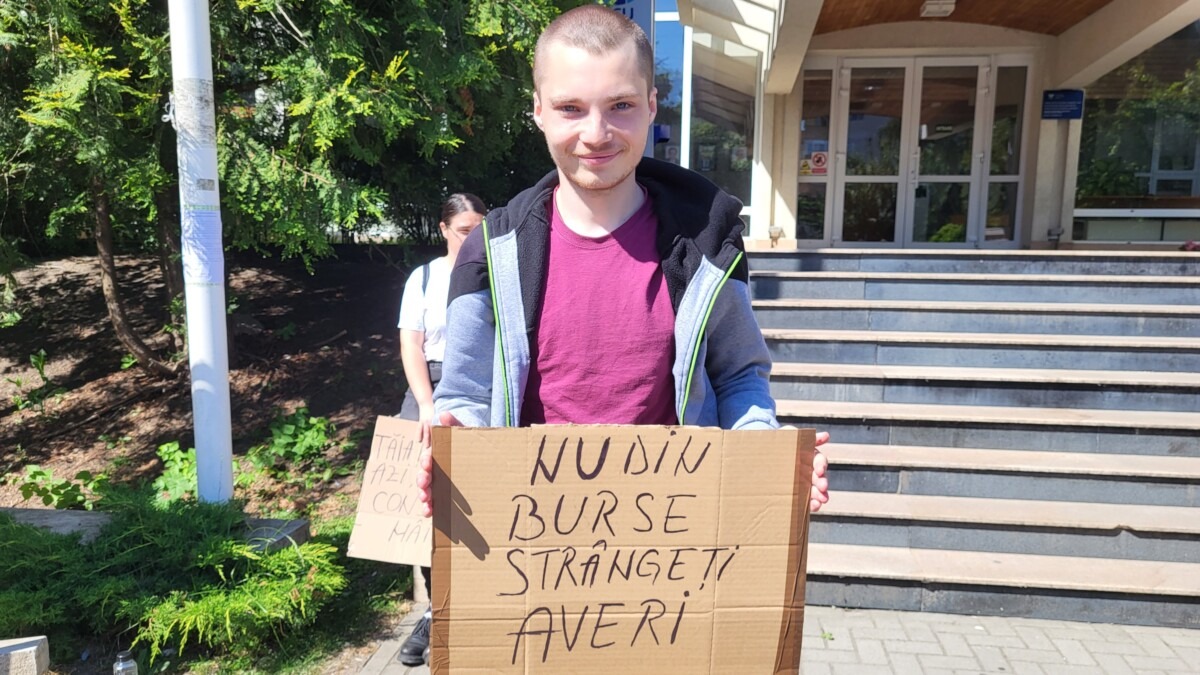 NU DIN
BURSE
STRÂNGEȚI
AVERI
AZI,
CON
MÂ